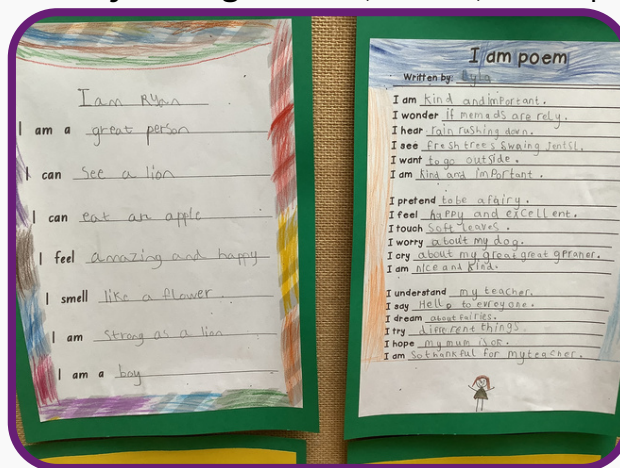 I am Ryan
I am a great person
I can see a lion
I can eat an apple
I feel amazing and happy
I smell like a flower
I am strong as a lion
I am a boy
I am poem
Written by:
I am kind and important.
I wonder if memads are rely.
I hear rain rushing down.
I see fresh trees swaing jentsl.
I want to go outside.
I am kind and important.
I pretend to be a fairy.
I feel happy and excellent.
I touch Soft leaves.
I worry about my dog.
I cry about my great great
I am nice and kind.
I understand my teacher.
I say Hello to evreyone.
I dream about fairies.
I try diffrent things.
I hope my mum is ok.
I am So thankful for my teacher.